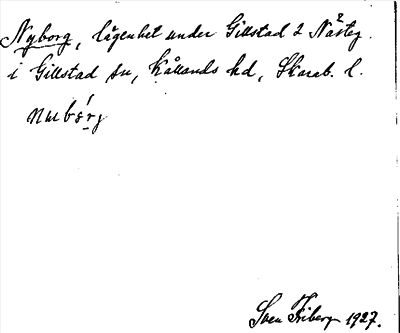 Nyborg, lägenhet under Gillstad 2 Nästeg.
i Gillstad sn, Kållands hd, Skarab. l.
nubórg
Sven Friberg 1927.